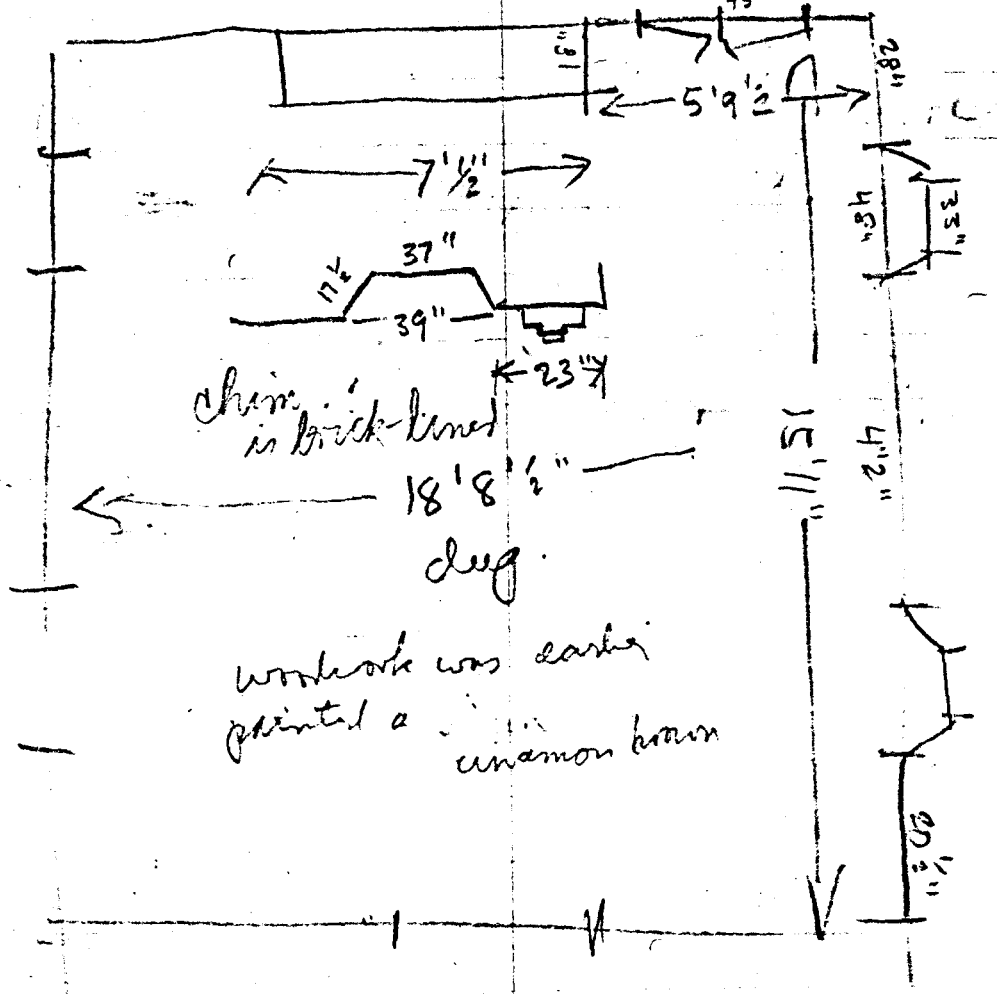 18"
28"
5'9½
7'½"
33"
48"
37"
17½
39"
23"
chim.
is brick-lined
18'8½"
15'11"
4'2"
woodwork was earlier
painted a
cinamon brown
20½"